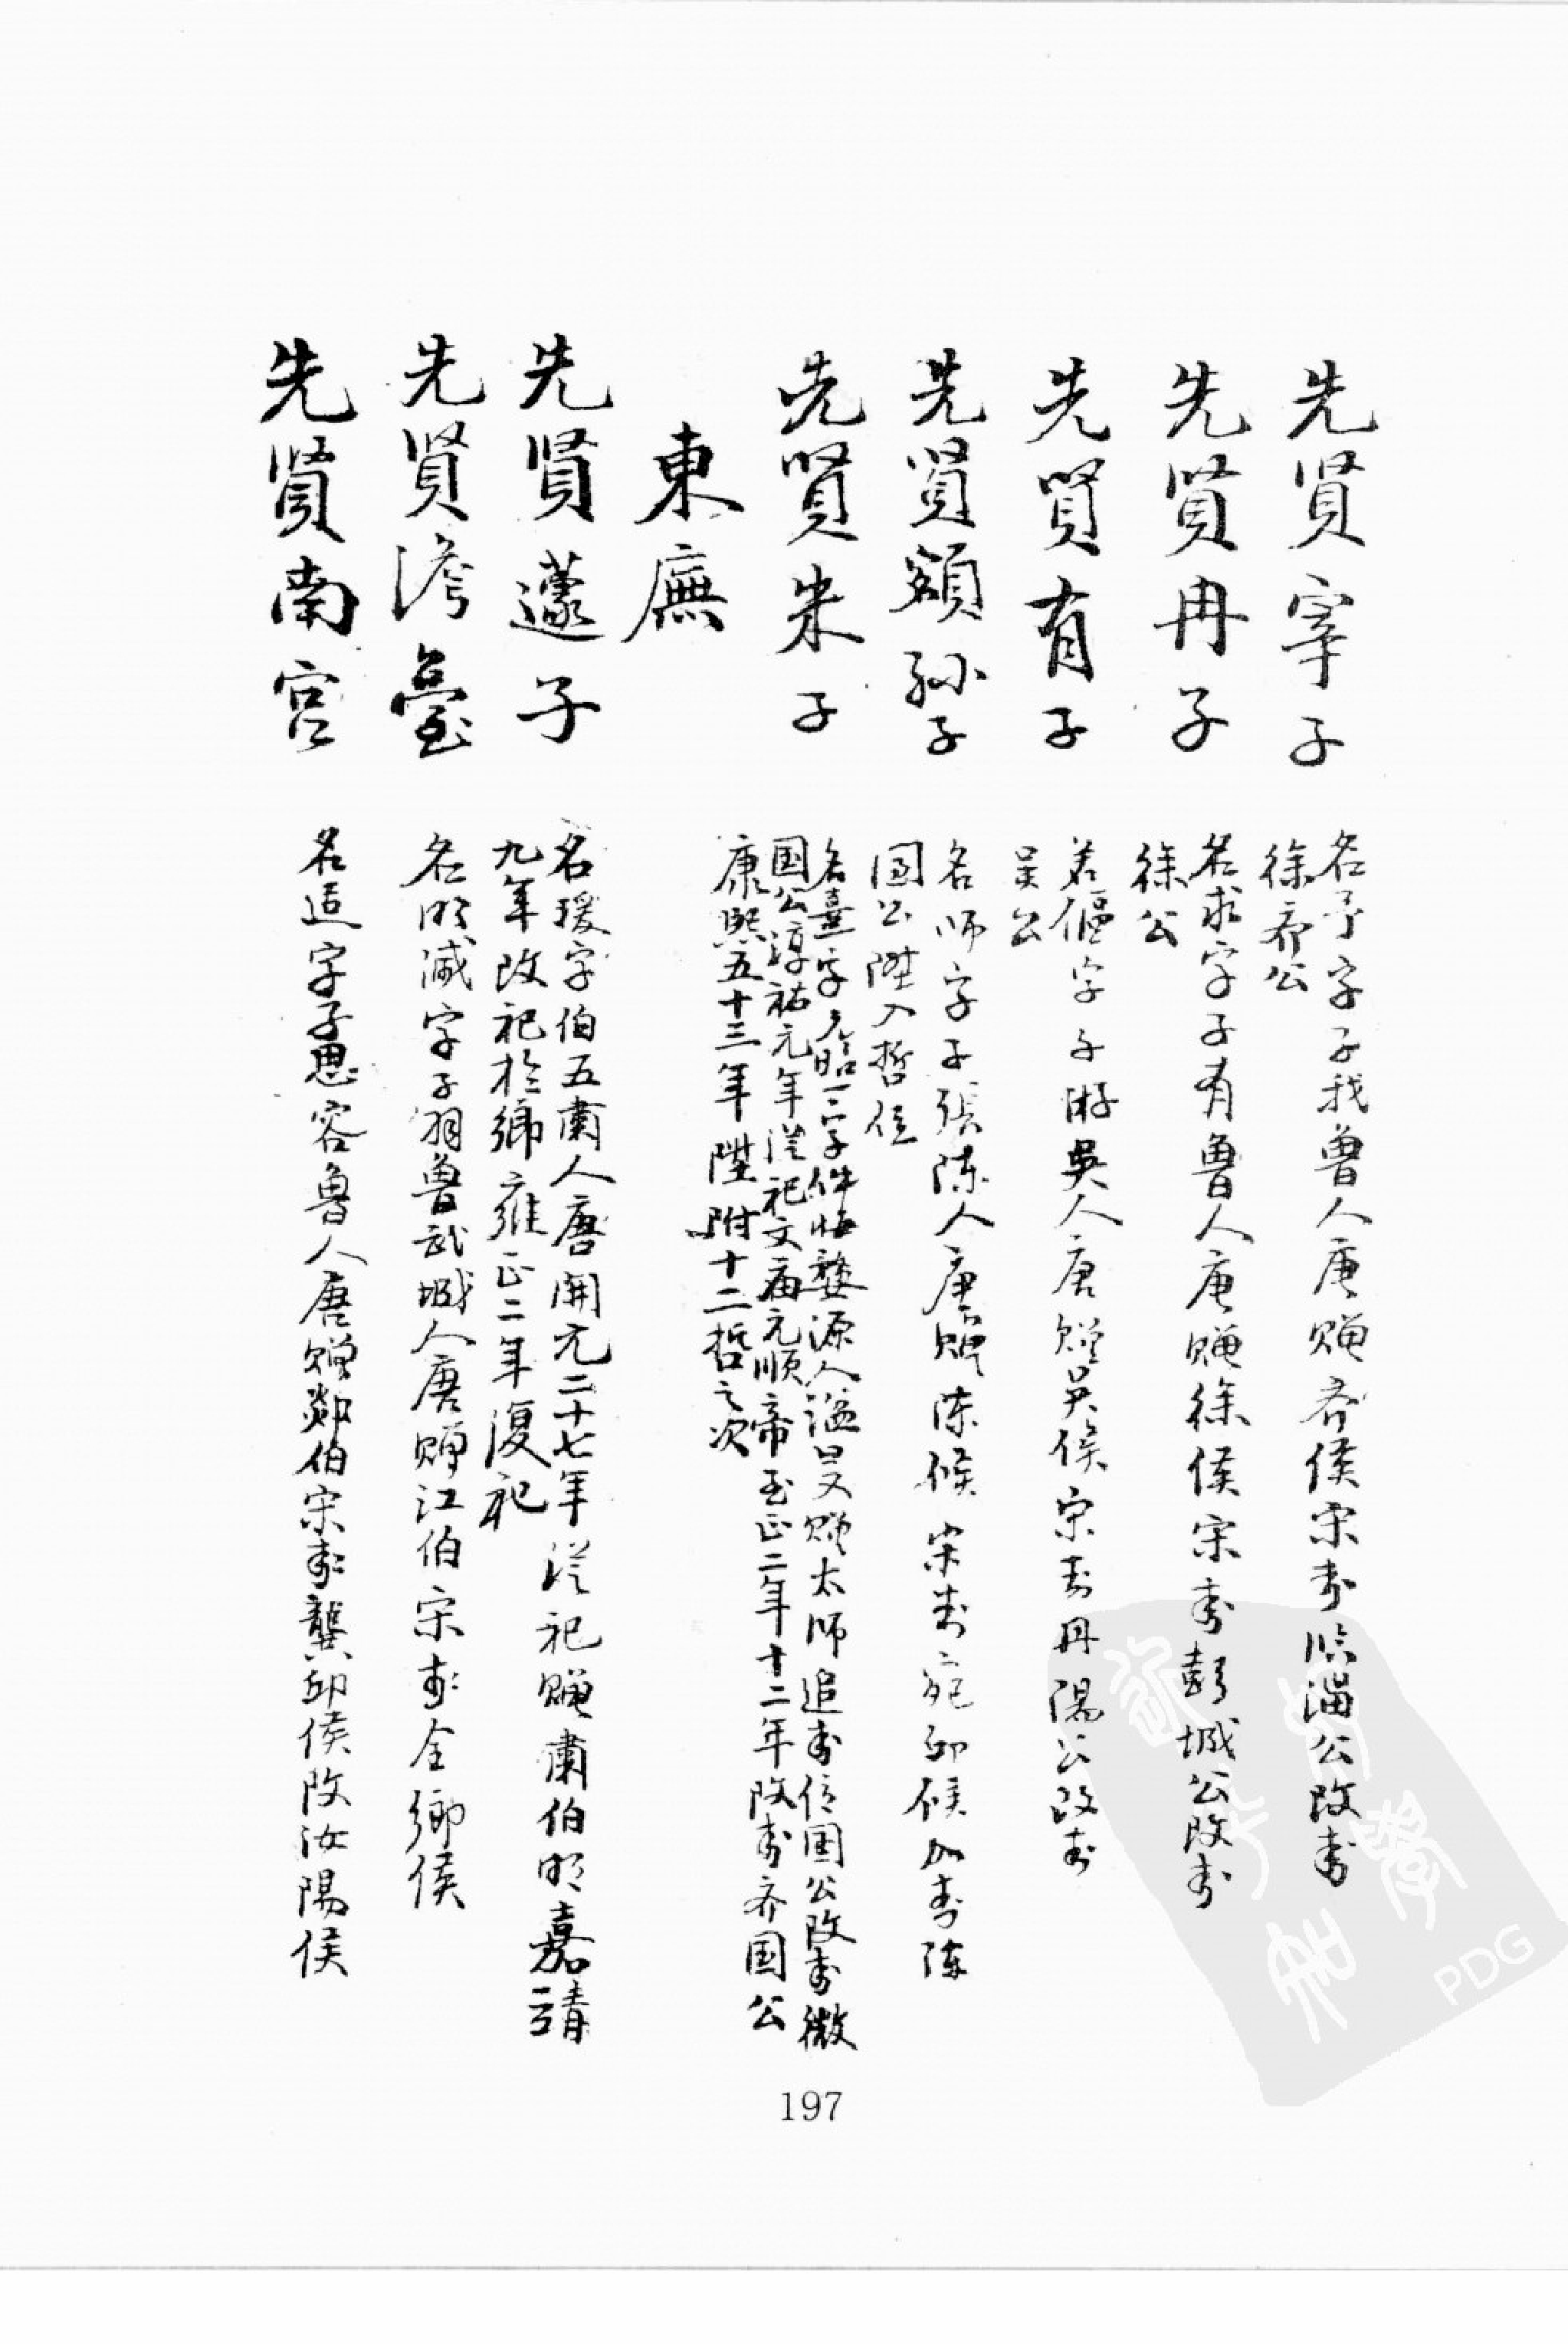 先贤宰子
名予字子我魯人唐赠齐侯宋封临淄公改封
徐齐公
先贤冉子
名求字子有魯人唐赠徐侯宋封彭城公改封
徐公
先贤有子
名偃字子游吳人唐赠吴侯宋封丹陽公改封
吴公
先贤顓孙子
名师字子張陈人唐赠陈候宋封宛邱候加封陈
国公陞入哲位
先贤朱子
名熹字元晦一字仲晦婺源人謚曰文赠太师追封信国公改封徽
国公淳祐元年從祀文庙元顺帝至正二年十二年改封齐国公
康熙五十三年陞附十二哲之次
東廡
先贤蘧子
名瑗字伯五衛人唐開元二十七年從祀赠衛伯明嘉靖
九年改祀於鄉雍正二年復祀
先贤澹臺
名明滅字子羽魯武城人唐赠江伯宋封金鄉侯
先贤南宫
名适字子思容魯人唐赠郯伯宋封龔邱侯改汝陽侯
197
PDG